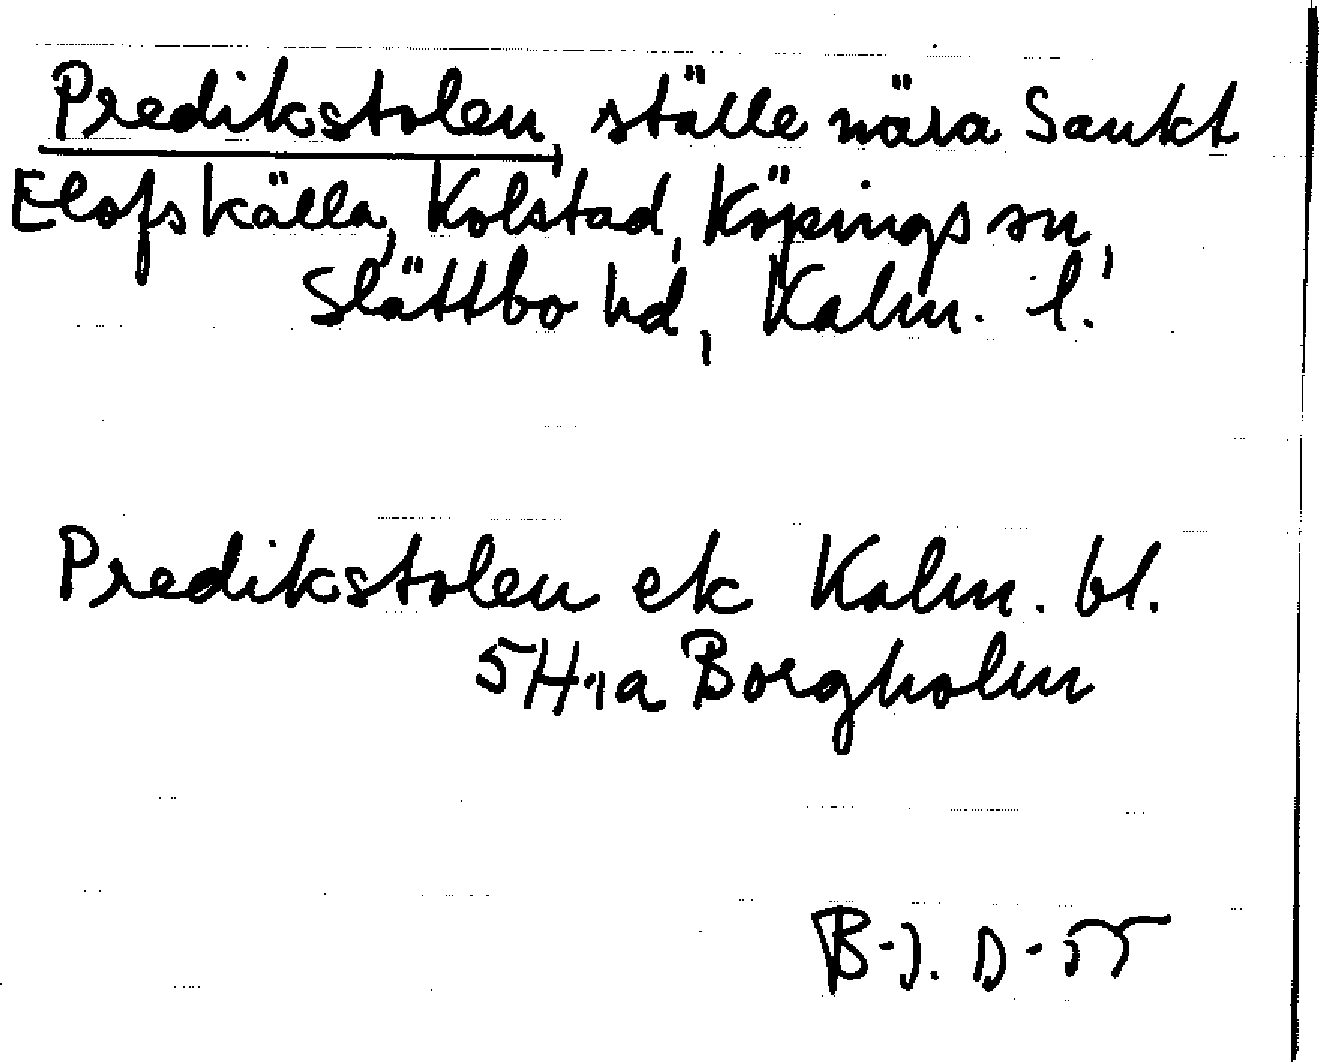 Predikstolen, ställe nära Sankt
Elofs källa, Kolstad, Köpings sn,
Slättbo hd, Kalm. l.
Predikstolen ek Kalm. bl.
5H:1a Borgholm
B-J. D-55